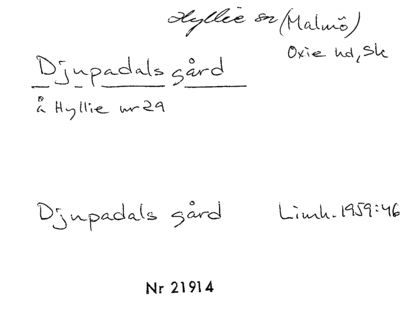 Hyllie sn (Malmö)
Oxie hd, Sk
Djupadals gård
å Hyllie nr 29
Djupadals gård Limh. 1959:46
Nr 21914